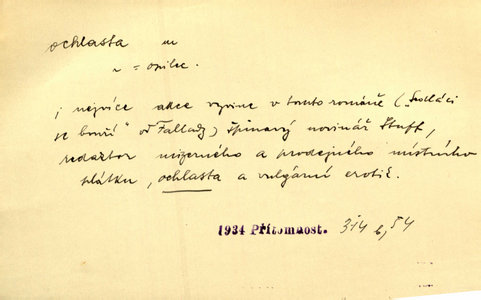 ochlasta m
~ = opilec.
; nejvíce akce vyvine v tomto románě („Sedláci
se bouří“ od Fallady) špinavý novinář Stuff,
redaktor mizerného a prodejného místního
plátku, ochlasta a vulgární erotik.
1934 Přítomnost. 314 b, 54